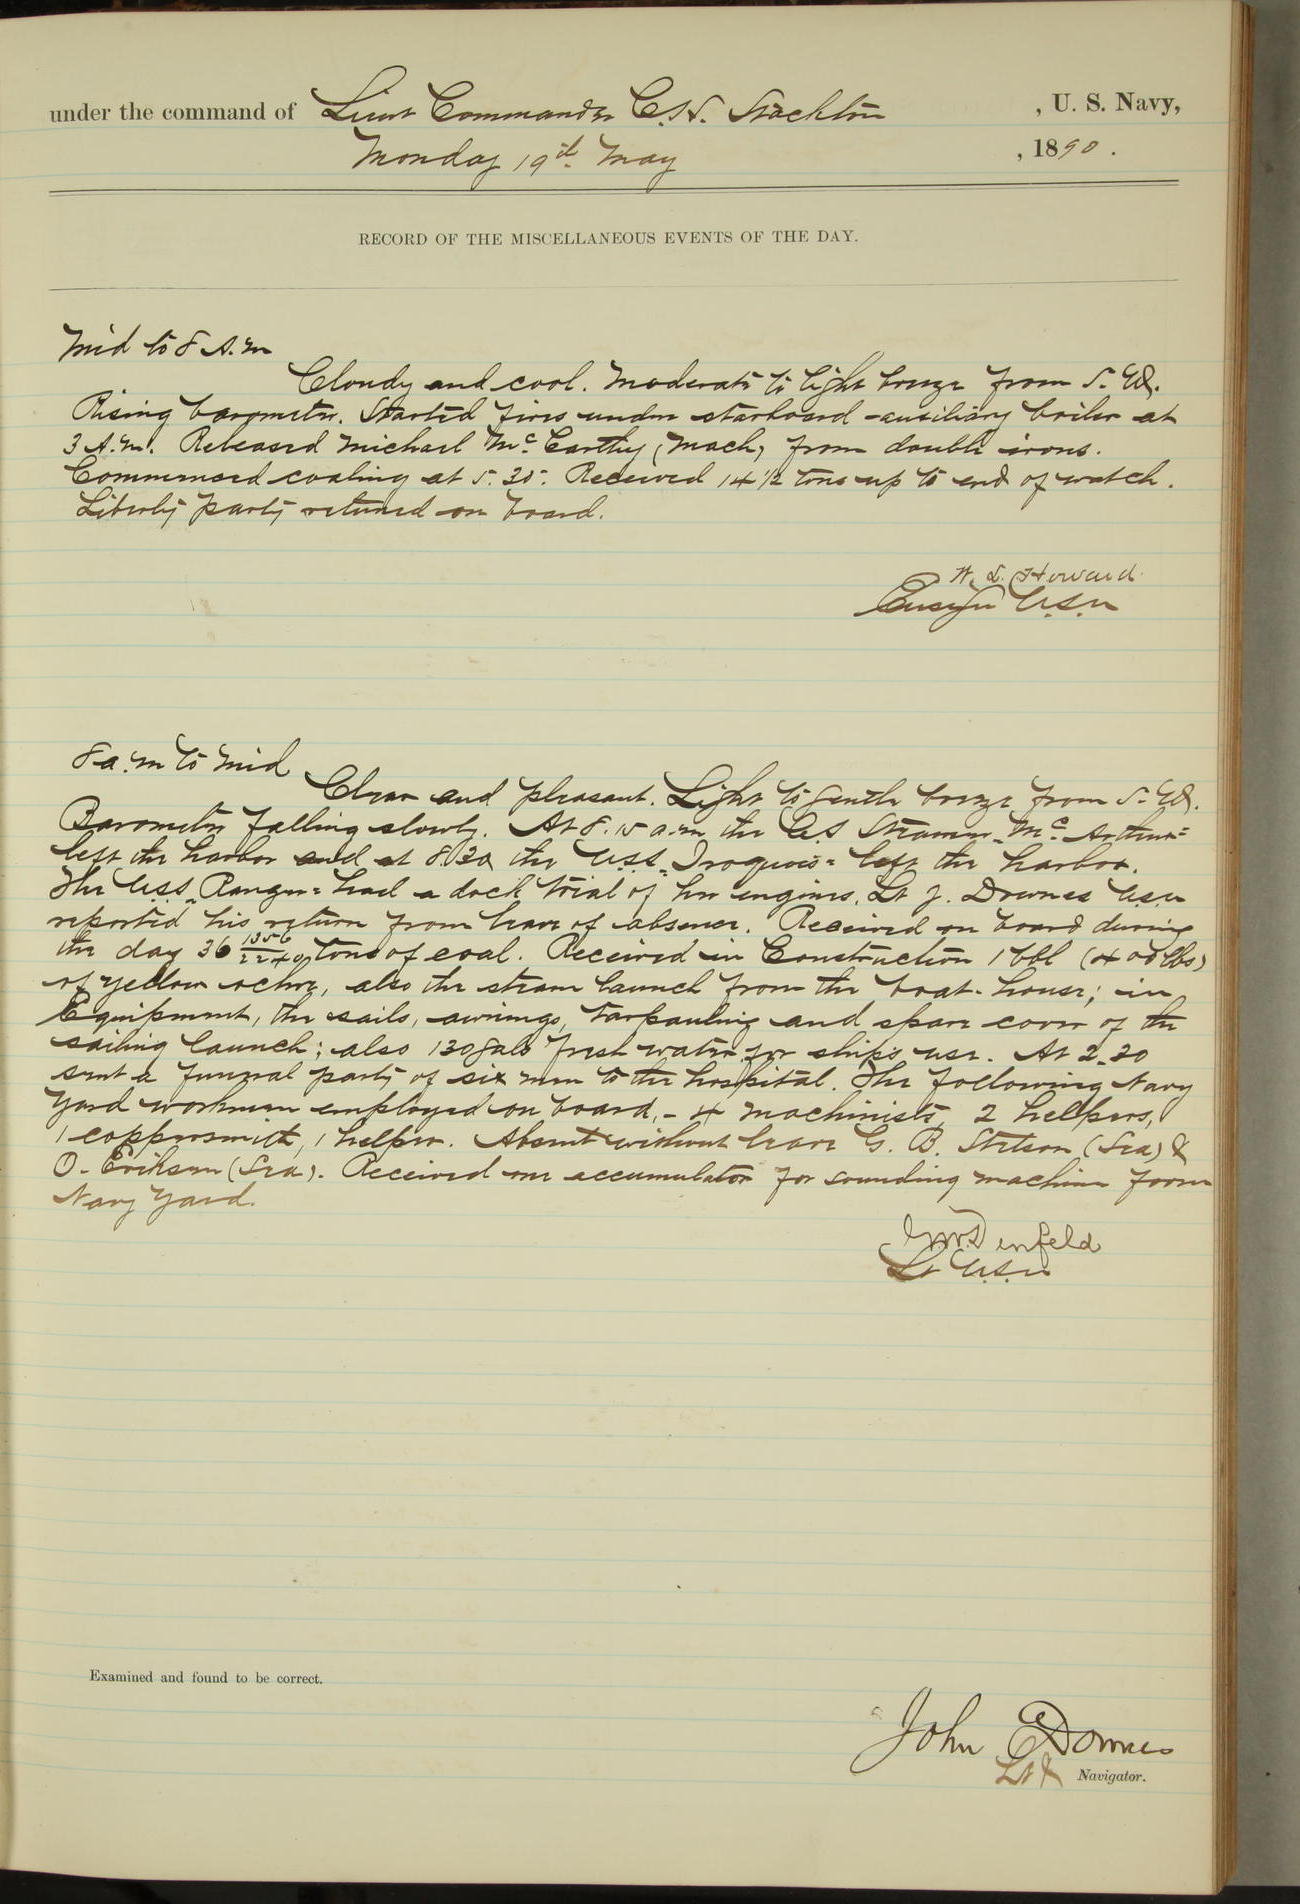 under the command of Lieut Commander C.H. Stockton , U. S. Navy,
Monday 19th May , 1890.
RECORD OF THE MISCELLANEOUS EVENTS OF THE DAY.
Mid to 8 A.m
Cloudy and cool. Moderate to light breeze from S. Wd.
Rising barometer. Started fires under starboard auxiliary boiler at
3 A.m. Released Michael McCarthy (Mach) from double irons.
Commenced coaling at 5.35. Received 14 1/2 tons up to end of watch.
Liberty party returned on board.
W. L. Howard
Ensign U.S.N
8 a.m to Mid
Clear and pleasant. Light to gentle breeze from S. Wd.
Barometer falling slowly. At 8.15 a.m the C.S Steamer "McArthur"
left the harbor and at 8.30 the U.S.S. "Iroquois" left the harbor.
The U.S.S. "Ranger" had a dock trial of her engines. Lt J. Downes U.S.N
reported his return from leave of absence. Received on board during
the day 36 1356/2240 tons of coal. Received in Construction 1 bbl (400 lbs)
of yellow ochre, also the steam launch from the boat-house; in
Equipment, the sails, awnings, tarpauling and spare cover of the
sailing launch; also 130 gals fresh water for ship's use. At 2.30
sent a funeral party of six men to the hospital. The following Navy
Yard workmen employed on board, - 4 Machinists, 2 helpers,
1 coppersmith, 1 helper. Absent without leave G. B. Stetson (Sea) &
O. Eriksen (Sea). Received one accumulator for sounding machine from
Navy Yard.
Denfeld
Lt U.S.N
Examined and found to be correct.
John Downes
Lt & Navigator.